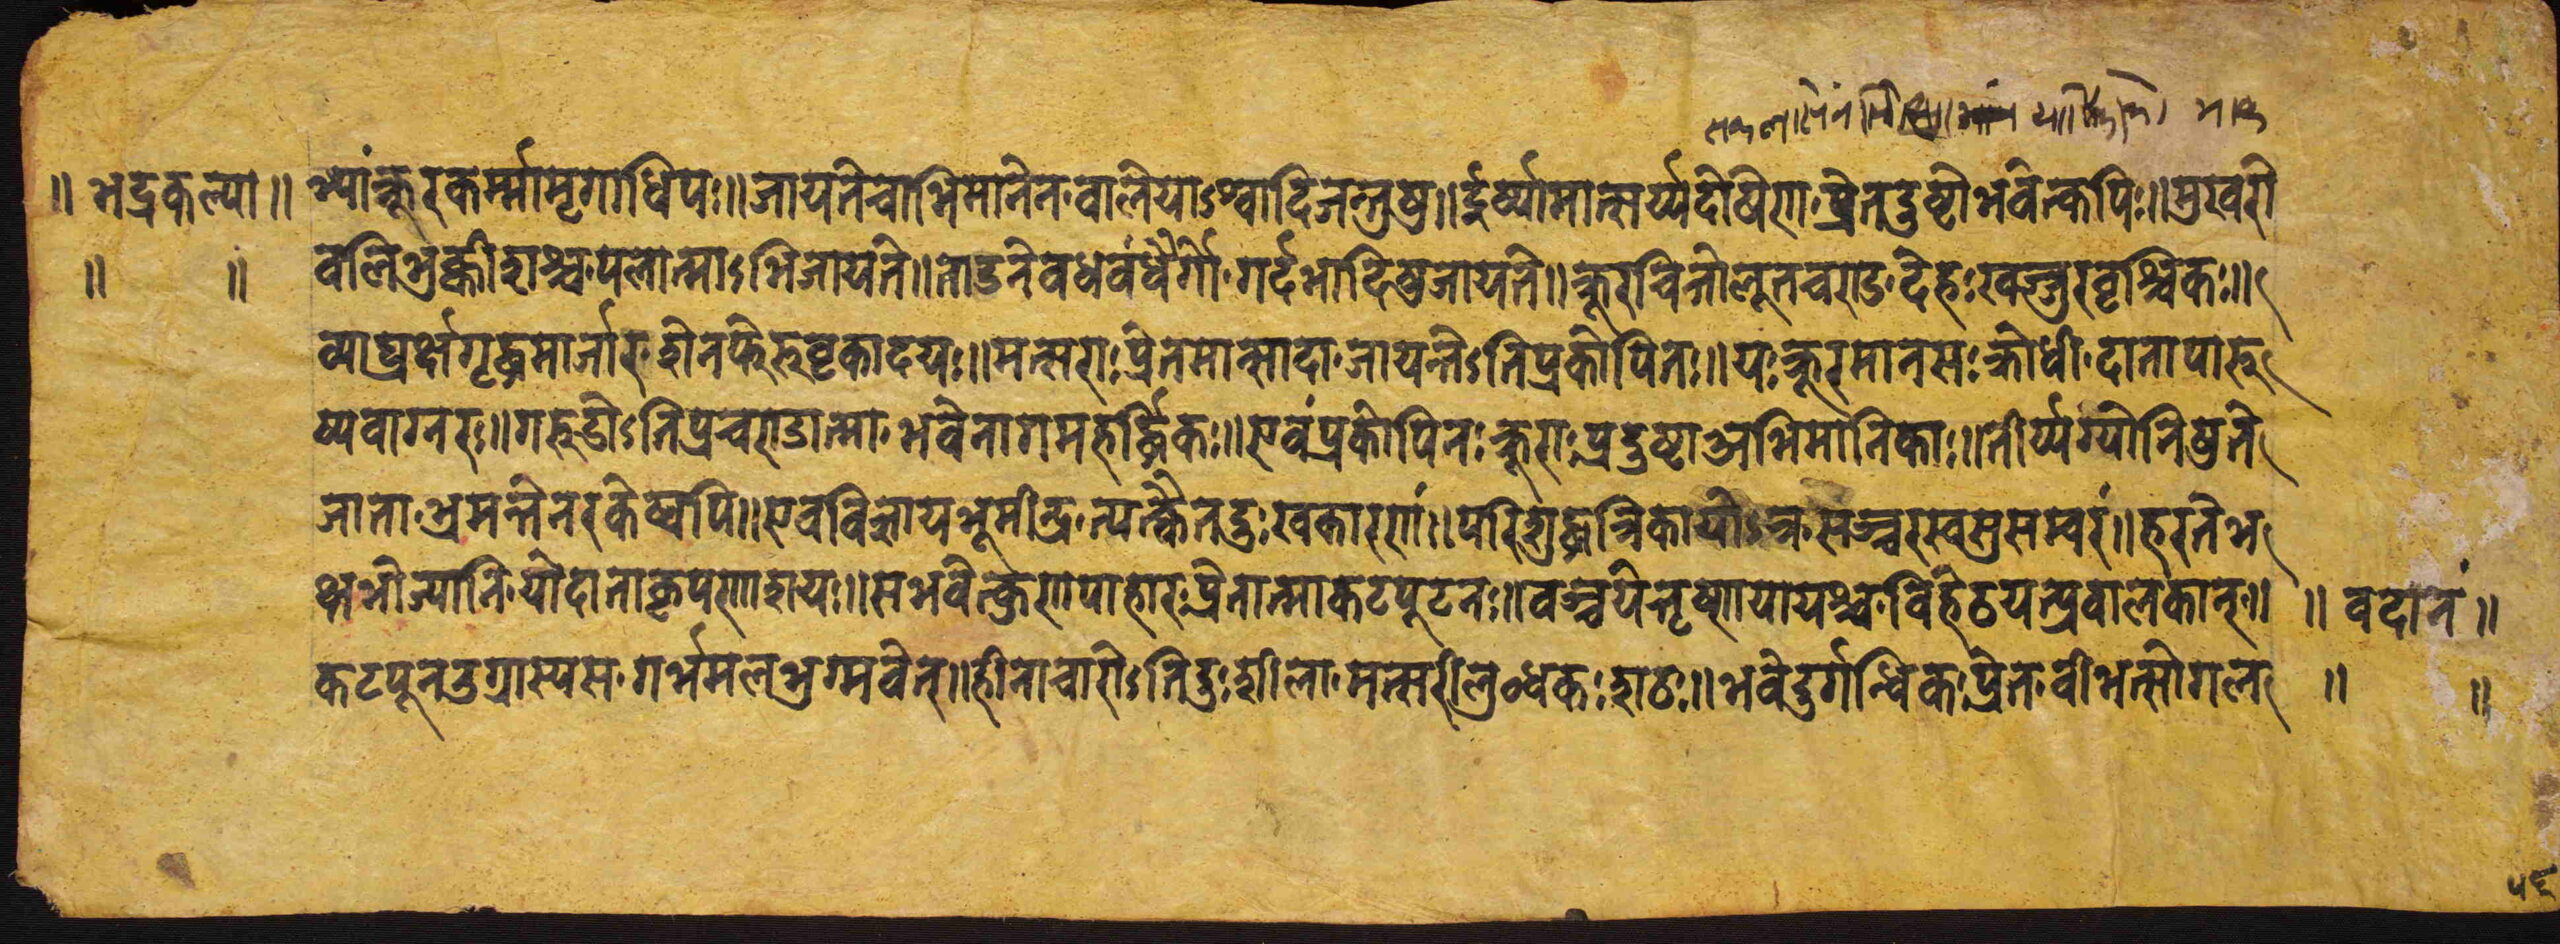 ॥ भद्रकल्पा ॥ भ्यांक्रूरकर्म्मामृगाधिपः॥जायतेचाभिमानेन॰वालेयाऽश्वादिजन्तुषु॥ईर्ष्यामात्सर्य्यदोषेण॰प्रेतदुष्टोभवेत्कपिः॥मुखरो
॥ ॥ वलिभुक्क्रोशश्च॰पलात्माऽभिजायते॥ताडनेवधवंधैर्गो॰गर्दभादिषुजायते॥क्रूरचित्तोलूतचराड॰देहःखर्ज्जुरवृश्चिकः॥
व्याघ्रर्क्षगृद्ध्रमार्जार॰श्वेनफेरुवृकादयः॥मत्सराःप्रेतमान्सादा॰जायन्तेऽतिप्रकोपिनः॥यःक्रूरमानसःक्रोधी॰दातापारु
ष्यवाग्नरः॥गरुडोऽतिप्रचराडात्मा॰भवेनागमहर्द्धिकः॥एवंप्रकोपिनःक्रूराःप्रदुष्टाअभिमानिकाः॥तीर्य्यग्योनिषुते
जाता॰भ्रमन्तेनरकेष्वपि॥एवविज्ञायभूमीन्द्र॰त्यत्क्वैतदुःखकारणं॥परिशुद्धत्रिकायोऽत्र॰सञ्चरस्वसुसम्वरं॥हरतेभ
क्षभोज्यानि॰योदानाकृपणाशयः॥सभवेत्कुणपाहारः॰प्रेतात्माकटपूटनः॥वञ्चयेत्तृष्णयायश्च॰विहेठयन्प्रवालकान्॥ ॥ वदानं ॥
कटपूतनुग्रास्यस॰गर्भमलभुग्मवेत्॥हीनाचारोऽतिदुःशीला॰मत्सरीलुब्धकःशठः॥भवेदुर्गन्धिकःप्रेत॰वीभत्सोगल ॥ ॥
५६